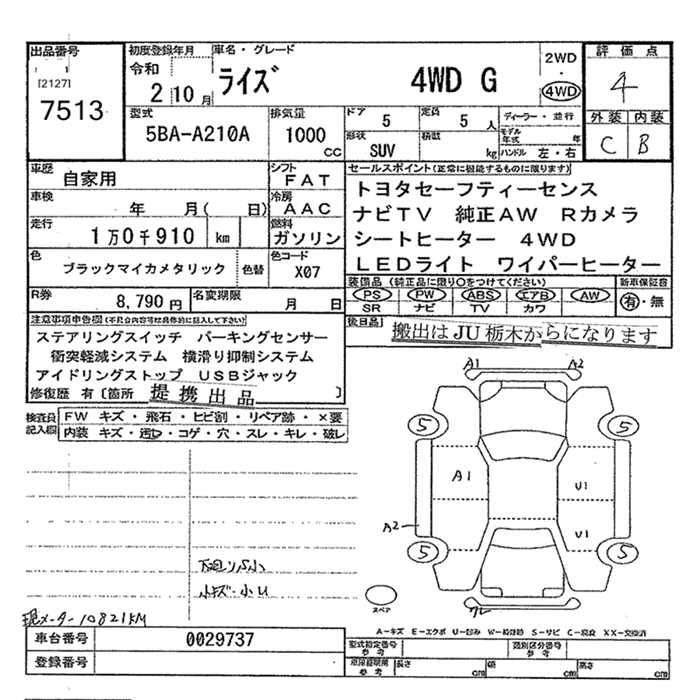 出品番号
[2127]
7513
初度登録年月
令和
2 10 月
車名・グレード
ライズ 4WD G
2WD
・
4WD
評価点
4
外装 内装
C B
型式
5BA-A210A
排気量
1000
cc
ドア 5
定員 5 人
形状 SUV
積載 kg
ディーラー・並行
モデル年式 年
ハンドル 左・右
車歴
自家用
シフト
FAT
車検
年 月( 日)
冷房
AAC
走行
1万0千910 km
燃料
ガソリン
色
ブラックマイカメタリック
色替
色コード
X07
R券
8,790 円
名変期限
月 日
セールスポイント(正常に機能するものに限ります)
トヨタセーフティーセンス
ナビTV 純正AW Rカメラ
シートヒーター 4WD
LEDライト ワイパーヒーター
装備品(純正品に限り○をつけてください)
PS PW ABS エアB AW
SR ナビ TV カワ
新車保証書
有・無
後日品
搬出はJU栃木からになります
注意事項申告欄(不具合内容等は具体的に記入して下さい)
ステアリングスイッチ パーキングセンサー
衝突軽減システム 横滑り抑制システム
アイドリングストップ USBジャック
修復歴 有〔箇所 〕
提携出品
検査員記入欄
FW キズ・飛石・ヒビ割・リペア跡・×要
内装 キズ・汚レ・コゲ・穴・スレ・キレ・破レ
A1 A2
5 5
A1 U1
A2 U1
5 5
スペア
下廻り小
小キズ・小U
現メーター10821KM
A−キズ E−エクボ U−凹み W−補修跡 S−サビ C−腐食 XX−交換済
車台番号 0029737
登録番号
型式指定番号 参考
類別区分番号 参考
長さ cm 幅 cm 高さ cm